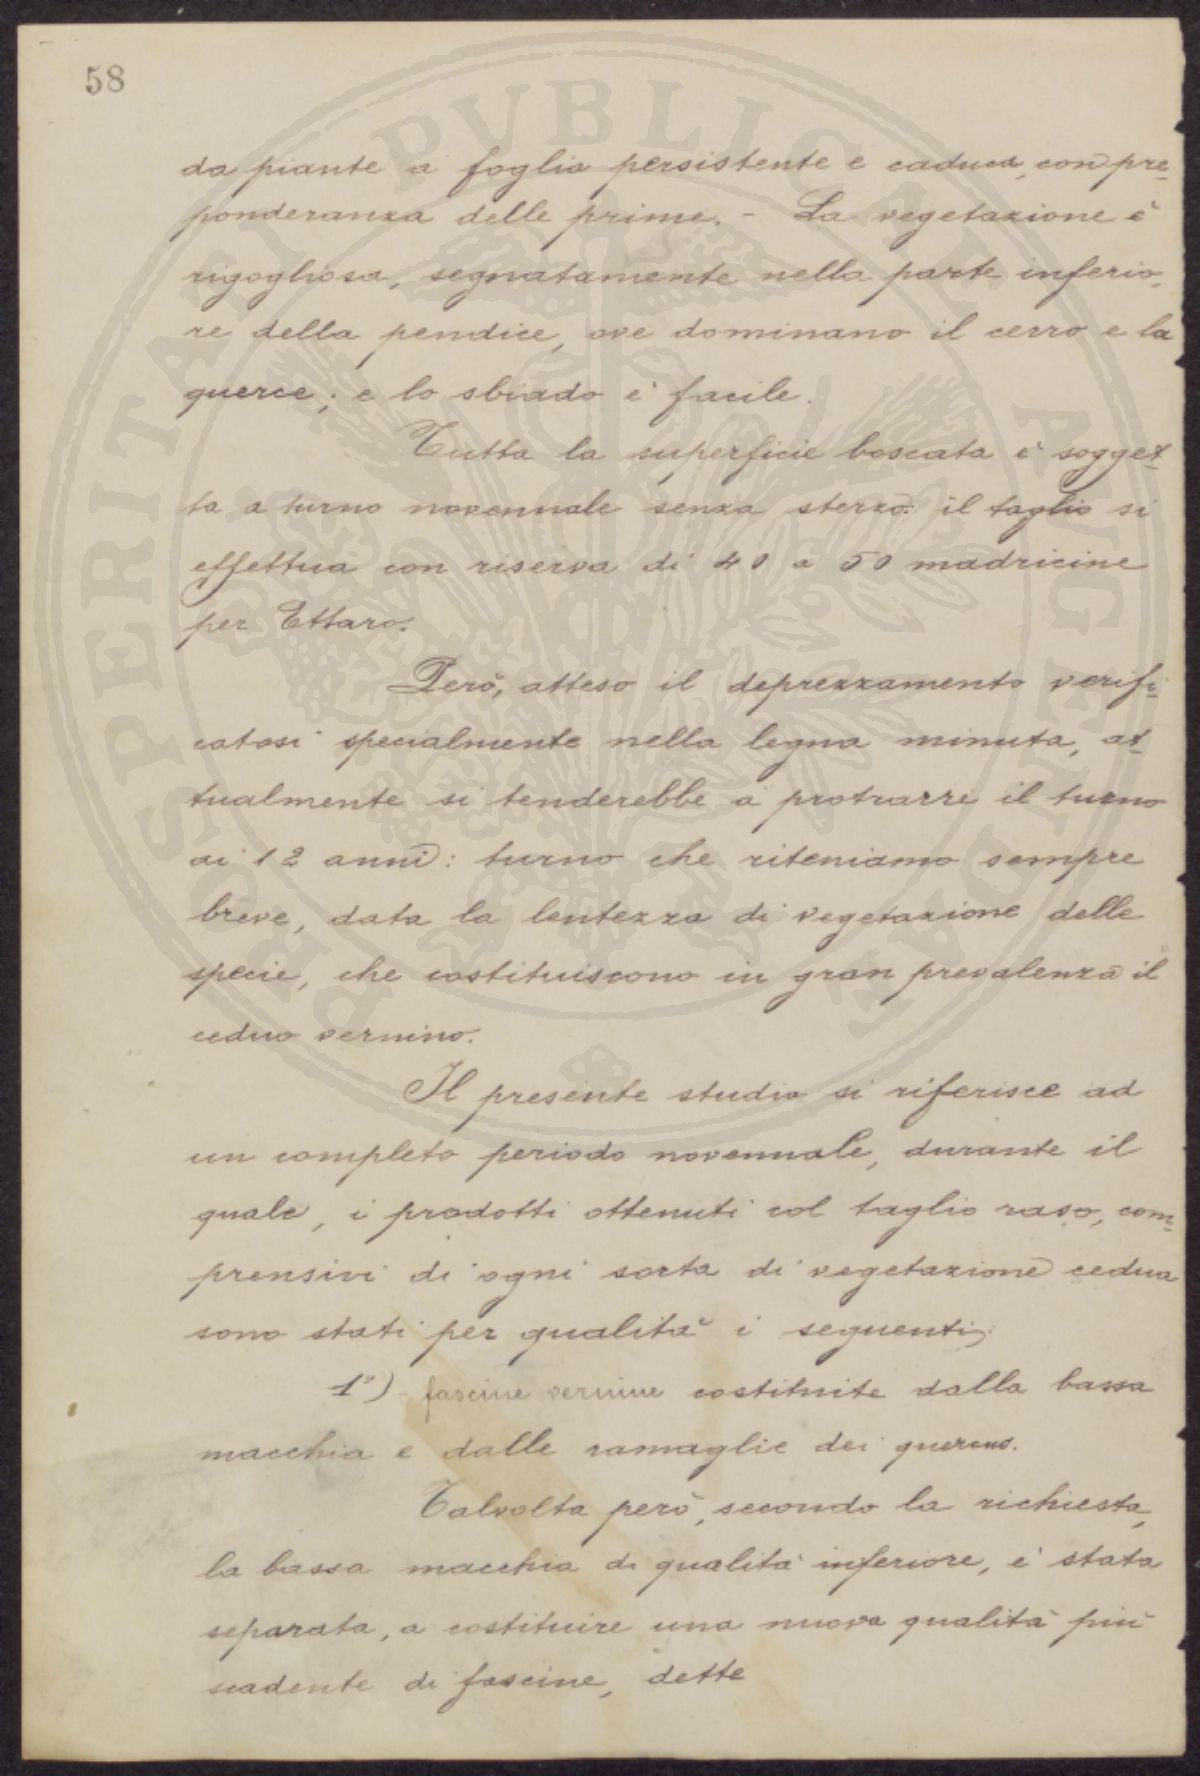 58
da piante a foglia persistente e caduca, con pre-
ponderanza delle prime. - La vegetazione è
rigogliosa, segnatamente nella parte inferio-
re della pendice, ove dominano il cerro e la
querce; e lo sbiado è facile.
Tutta la superficie boscata è sogget-
ta a turno novennale senza sterzo: il taglio si
effettua con riserva di 40 a 50 madricine
per Ettaro.
Però, atteso il deprezzamento verifi-
catosi specialmente nella legna minuta, at-
tualmente si tenderebbe a protrarre il turno
ai 12 anni: turno che riteniamo sempre
breve, data la lentezza di vegetazione delle
specie, che costituiscono in gran prevalenza il
ceduo vernino.
Il presente studio si riferisce ad
un completo periodo novennale, durante il
quale, i prodotti ottenuti col taglio raso, com-
prensivi di ogni sorta di vegetazione cedua
sono stati per qualità i seguenti:
1º) - fascine vernine costituite dalla bassa
macchia e dalle ramaglie dei quercus.
Talvolta però, secondo la richiesta,
la bassa macchia di qualità inferiore, è stata
separata, a costituire una nuova qualità più
scadente di fascine, dette
PROSPERITATI PVBLICAE AVGENDAE